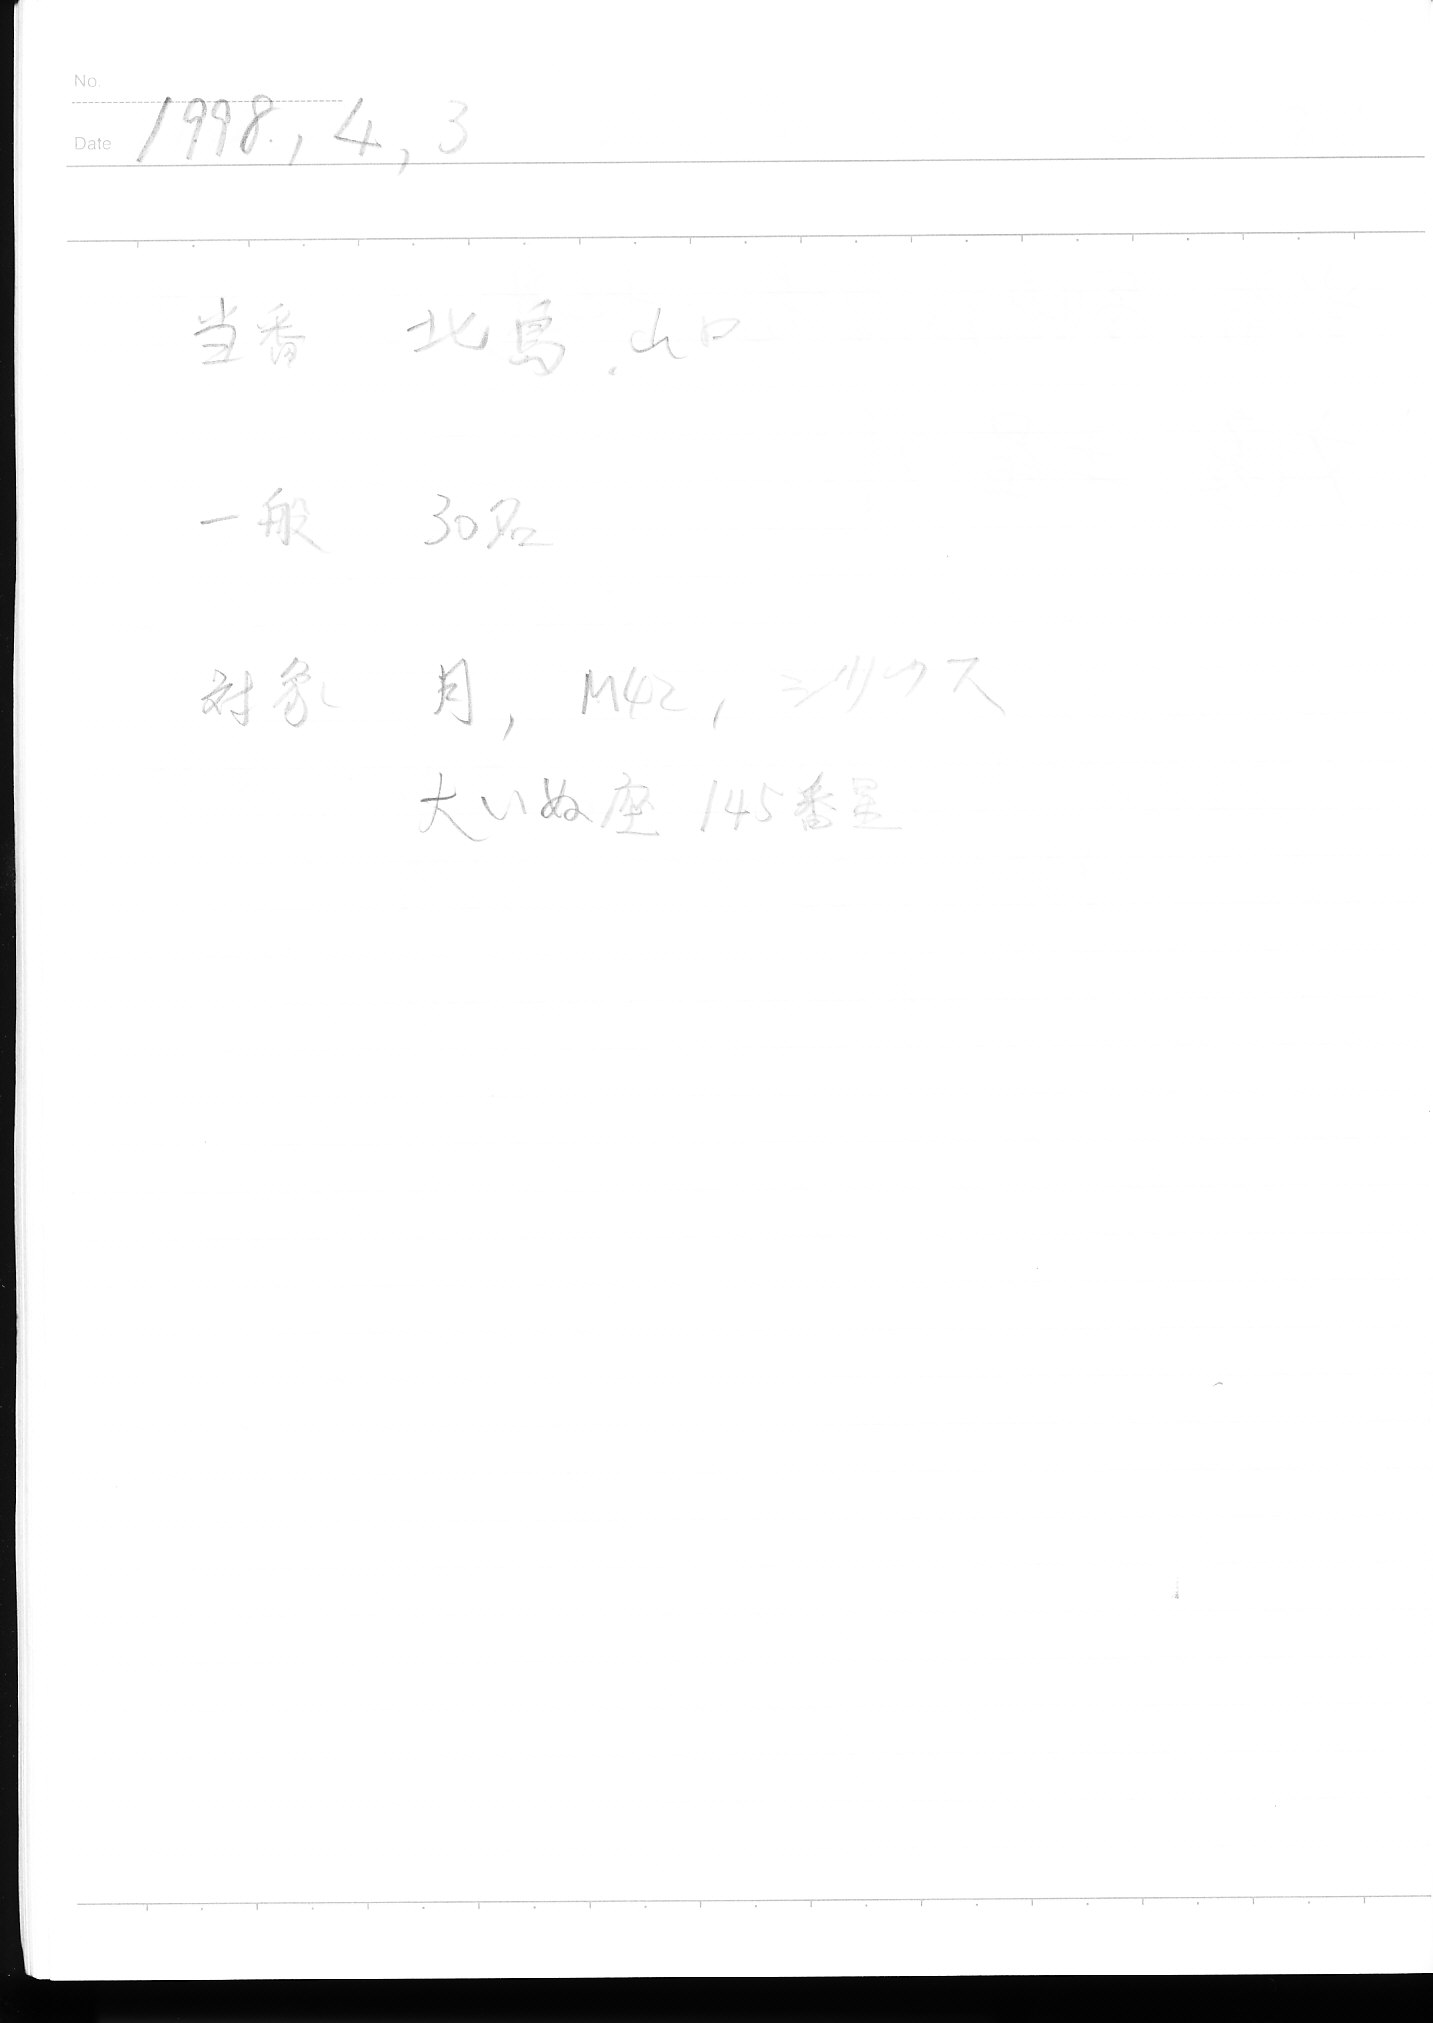 No.
Date 1998., 4, 3
当番 北島、山口
一般 30名
対象 月, M42, シリウス
大いぬ座 145番星